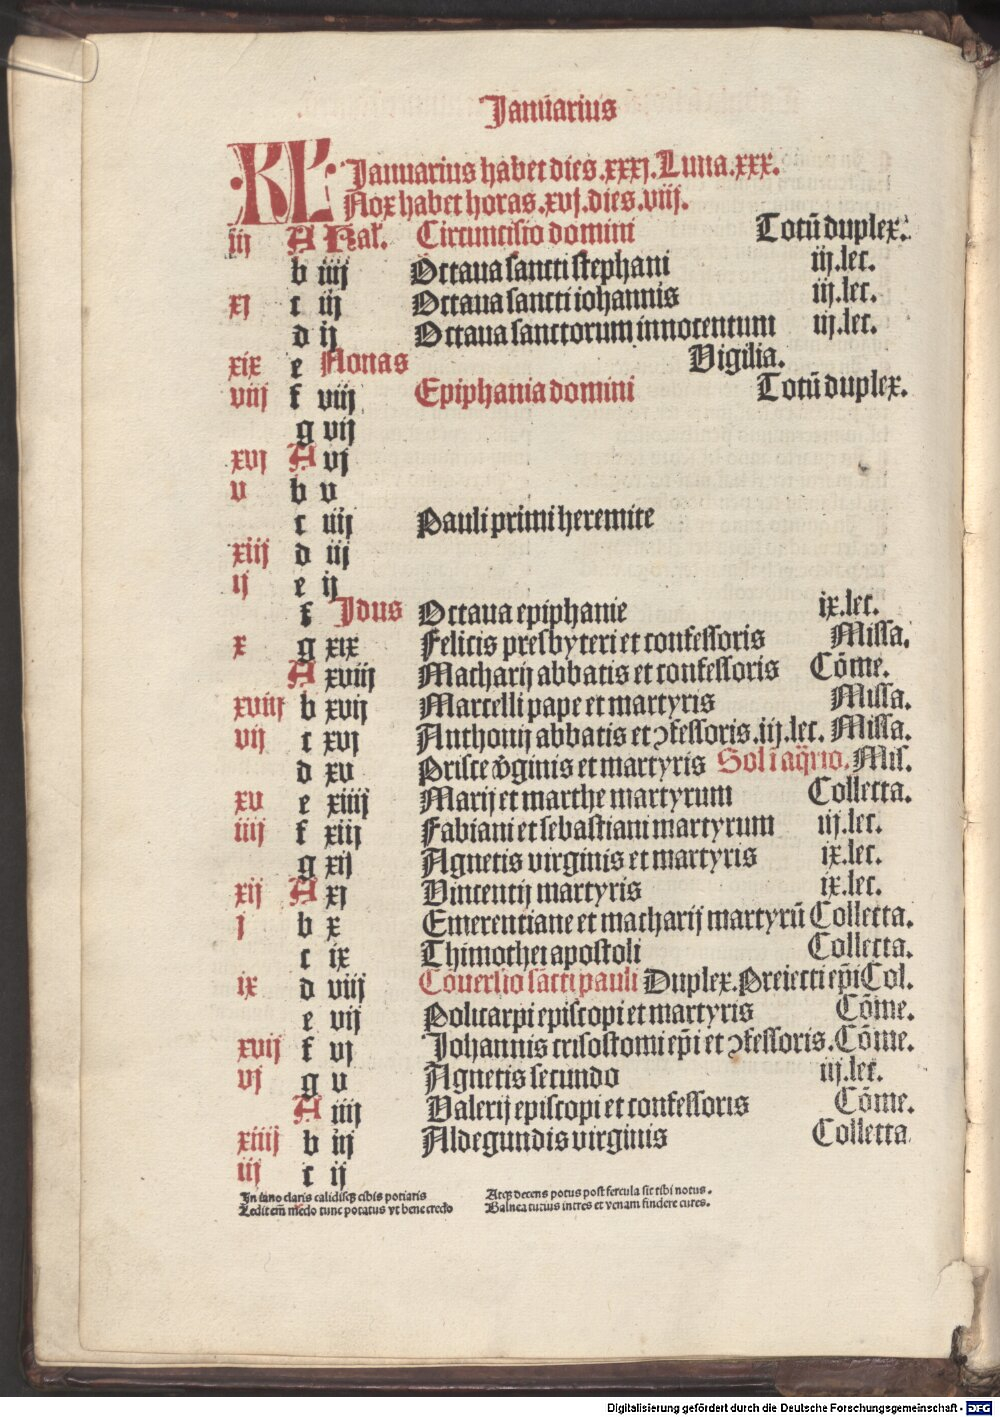 Januarius
KL Januarius habet dies .xxxj. Luna .xxx.
Nox habet horas .xvj. dies .viij.
iij A Kal'. Circumcisio domini Totū duplex.
b iiij Octaua sancti stephani iij.lec.
xj c iij Octaua sancti iohannis iij.lec.
d ij Octaua sanctorum innocentum iij.lec.
xix e Nonas Vigilia.
viij f viij Epiphania domini Totū duplex.
g vij
xvj A vj
v b v
c iiij Pauli primi heremite
xiij d iij
ij e ij
f Idus Octaua epiphanie ix.lec.
x g xix Felicis presbyteri et confessoris Missa.
A xviij Macharij abbatis et confessoris Cōme.
xviij b xvij Marcelli pape et martyris Missa.
vij c xvj Anthonij abbatis et ↄfessoris .iij.lec. Missa.
d xv Prisce v̄ginis et martyris Sol ī aq̄rio. Mis.
xv e xiiij Marij et marthe martyrum Collecta.
iiij f xiij Fabiani et sebastiani martyrum iij.lec.
g xij Agnetis virginis et martyris ix.lec.
xij A xj Vincentij martyris ix.lec.
j b x Emerentiane et macharij martyrū Collecta.
c ix Thimothei apostoli Collecta.
ix d viij Cōuersio sācti pauli Duplex. Preiecti ep̄i Col.
e vij Policarpi episcopi et martyris Cōme.
xvij f vj Johannis crisostomi ep̄i et ↄfessoris. Cōme.
vj g v Agnetis secundo iij.lec.
A iiij Valerij episcopi et confessoris Cōme.
xiiij b iij Aldegundis virginis Collecta.
iij c ij
In iano claris calidisqꝫ cibis potiaris Atqꝫ decens potus post fercula sit tibi notus.
Ledit em̄ medo tunc potatus vt bene credo Balnea tutius intres et venam findere cures.
Digitalisierung gefördert durch die Deutsche Forschungsgemeinschaft - DFG